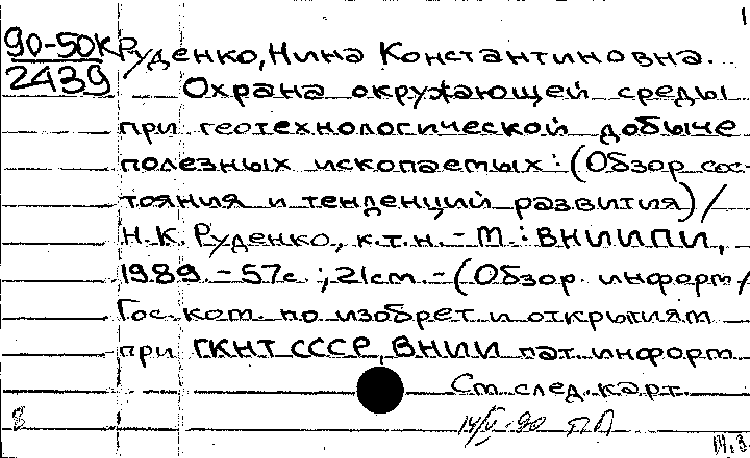 1
90-50К Руденко, Нина Константиновна...
2439 Охрана окружающей среды
при геотехнологической добыче
полезных ископаемых: (Обзор сос-
тояния и тенденций развития) /
Н.К. Руденко, к.т.н. - М.: ВНИИПИ,
1989. - 57с.; 21см. - (Обзор. информ /
Гос. ком. по изобрет и открытиям
при ГКНТ СССР, ВНИИ пат. информ
См. след. карт.
8
14/V-90